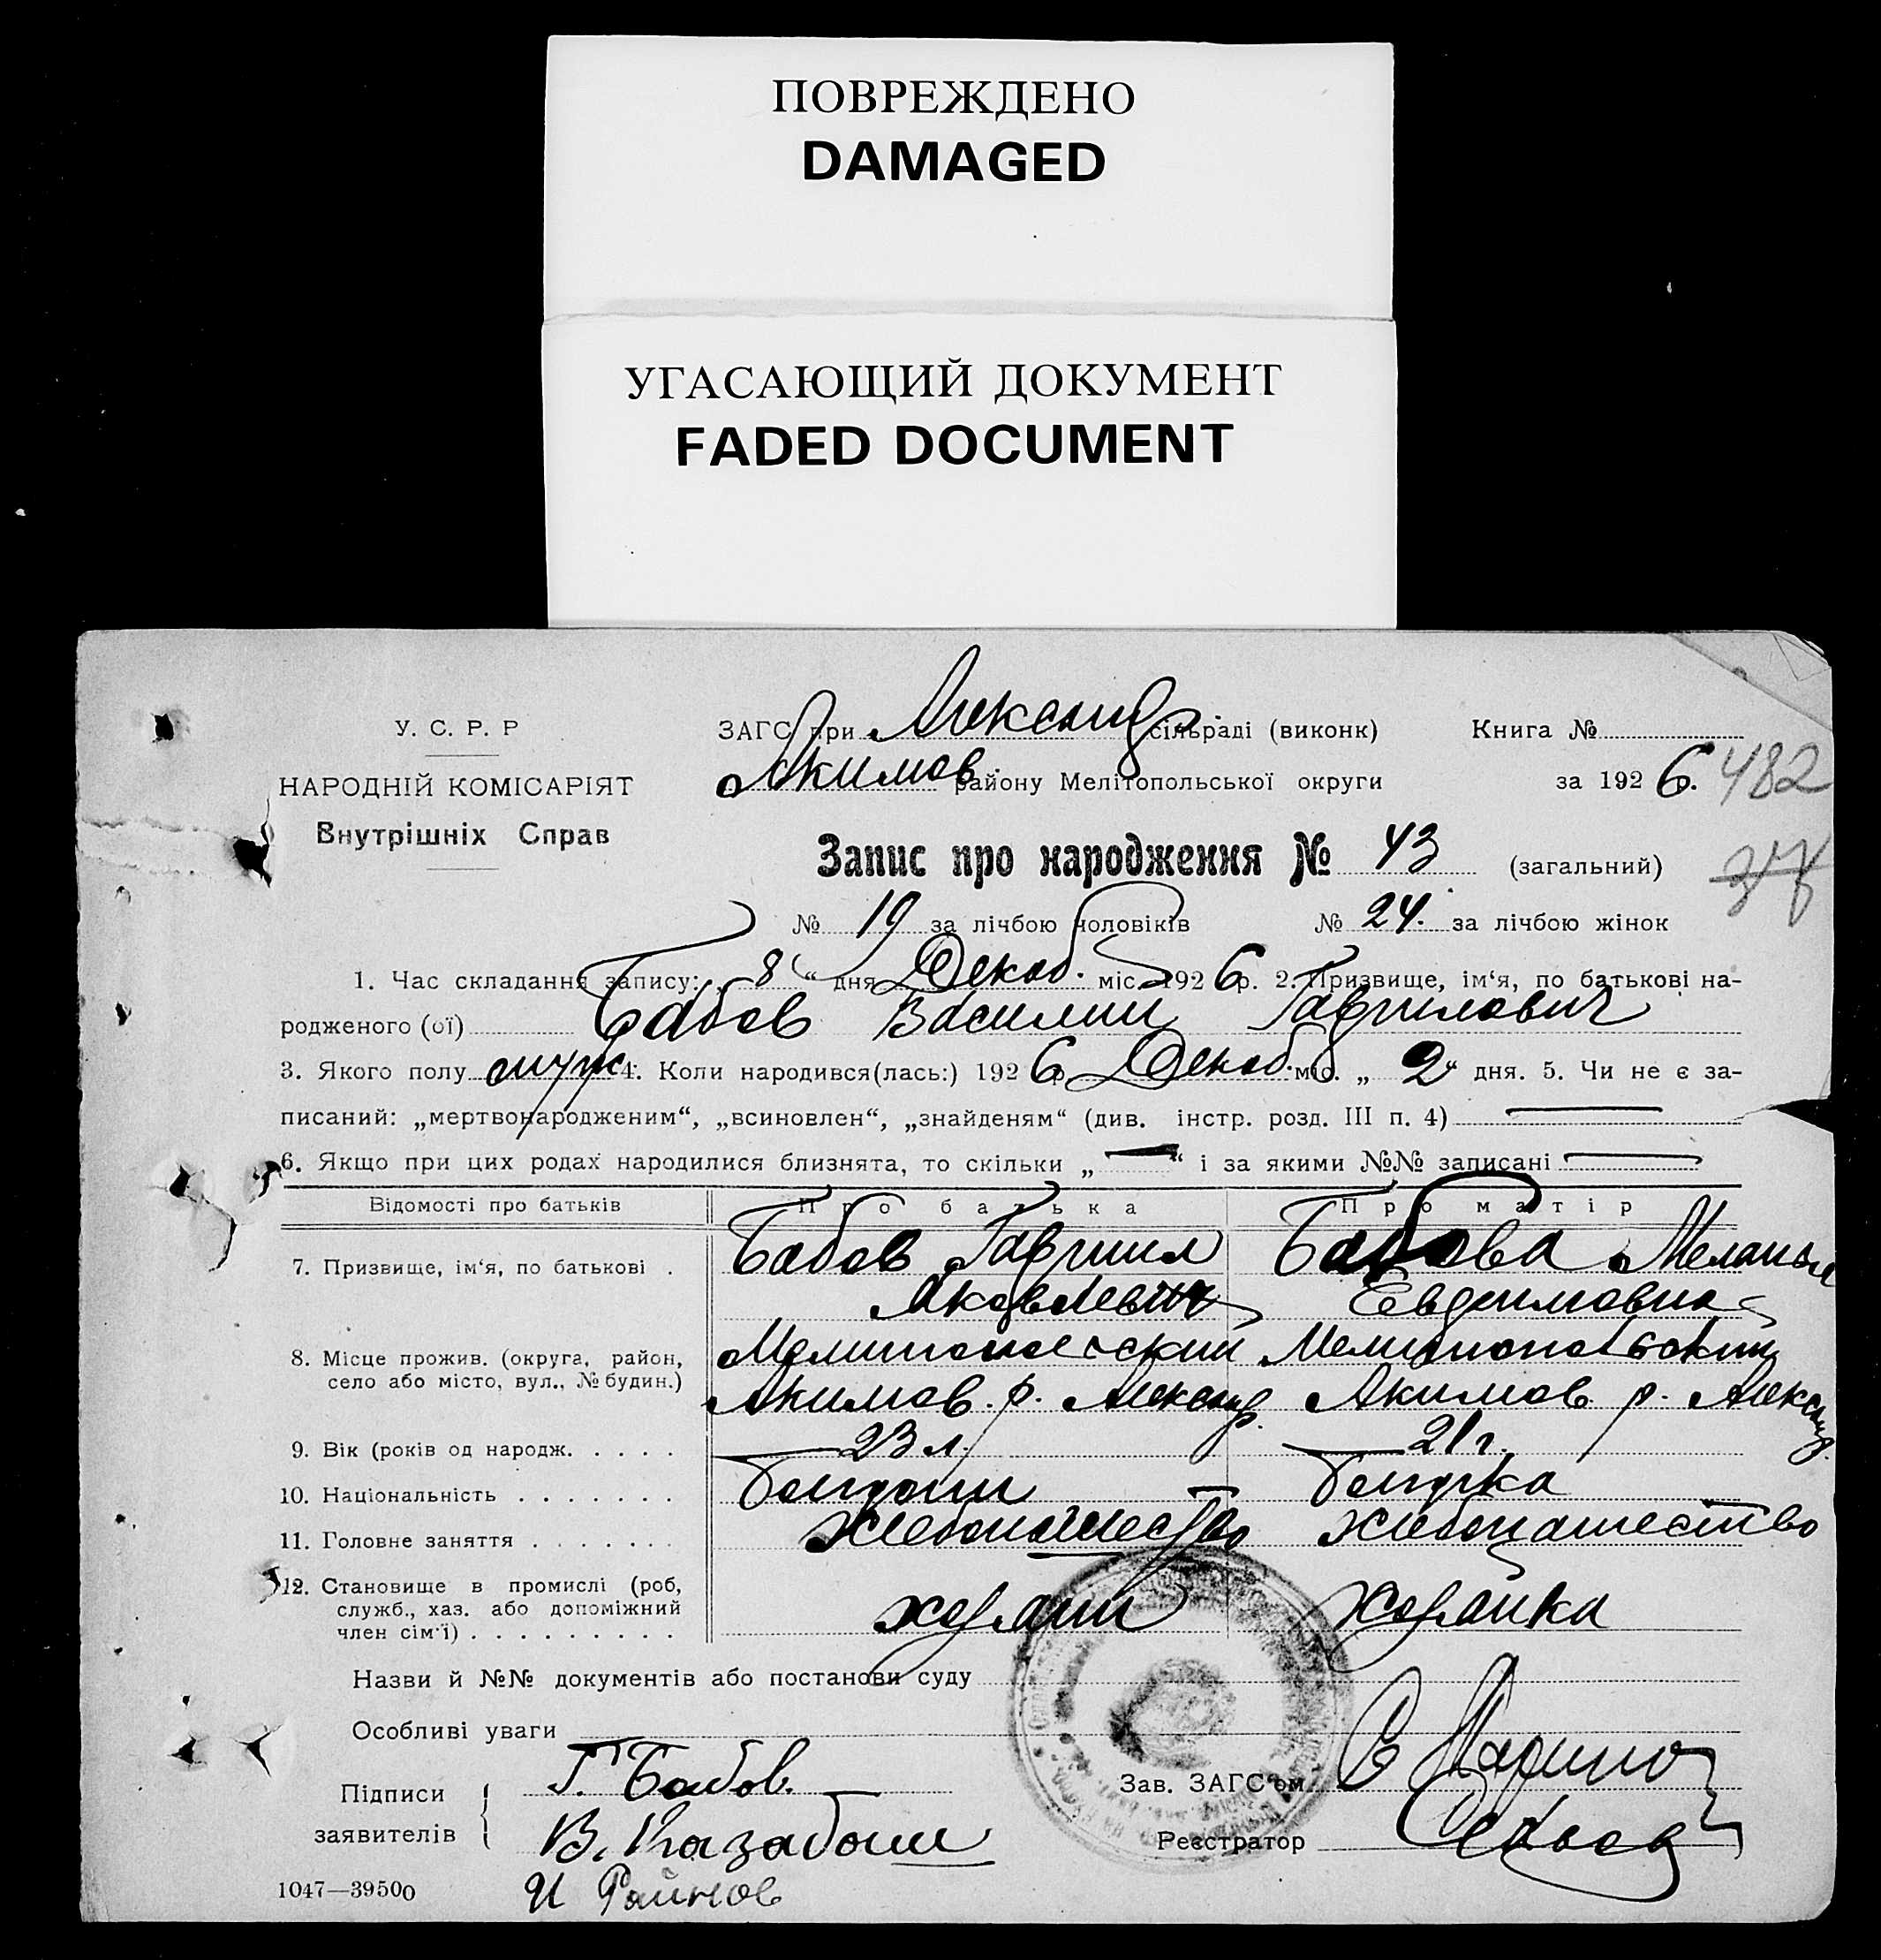 ПОВРЕЖДЕНО
DAMAGED
УГАСАЮЩИЙ ДОКУМЕНТ
FADED DOCUMENT
У. С. Р. Р
НАРОДНІЙ КОМІСАРІЯТ
Внутрішніх Справ
ЗАГС при Александр. сільраді (виконк) Книга №
Акимов. району Мелітопольської округи за 1926.
482
Запис про народження № 43 (загальний)
37
№ 19 за лічбою чоловіків № 24. за лічбою жінок
1. Час складання запису: „8“ дня Декаб. міс. 1926 р. 2. Призвище, ім‘я, по батькові на-
родженого (ої) Бабов Василий Гаврилович
3. Якого полу муж 4. Коли народився(лась:) 1926 р Декаб. міс. „ 2 “ дня. 5. Чи не є за-
писаний: „мертвонародженим“, „всиновлен“, „знайденям“ (див. інстр. розд. III п. 4)
6. Якщо при цих родах народилися близнята, то скільки „—“ і за якими №№ записані
Відомості про батьків Про батька Про матір
7. Призвище, ім‘я, по батькові . Бабов Гавриил Бабова Мелания
Яковлевич Евдокимовна
8. Місце прожив. (округа, район, Мелитопольский Мелитопольский
село або місто, вул., № будин.) Акимов. р. Александр. Акимов. р. Александр.
9. Вік (років од народж. . . . . 23 л. 21 г.
10. Національність . . . . . . . Болгарин Болгарка
11. Головне заняття . . . . . . . Хлебопашество Хлебопашество
12. Становище в промислі (роб, хозяин хозяйка
служб., хаз. або допоміжний
член сім‘ї) . . . . . . . . .
Назви й №№ документів або постанови суду
Особливі уваги
Підписи Г. Бабов. Зав. ЗАГС‘ом
заявителів В. Казабаш Реєстратор
1047—39500 И Райнов